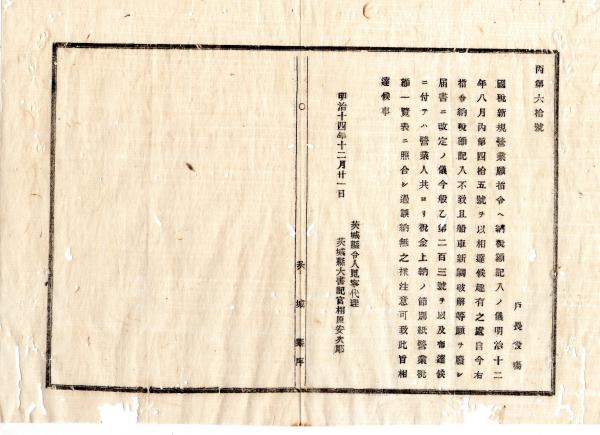 丙第六拾號
戸長役場
國税新規營業願指令ヘ納税額記入ノ儀明治十二
年八月丙第四拾五號ヲ以相達候趣有之處自今右
指令納税額記入不致且船車新調破解等願ヲ廢シ
届書ニ改定ノ儀今般乙第二百三號ヲ以及布達候
ニ付テハ營業人共ヨリ税金上納ノ節別紙營業税
額一覧表ニ照合シ過誤納無之様注意可致此旨相
達候事
明治十四年十二月廿一日
茨城縣令人見寧代理
茨城縣大書記官相原安次郎
茨城縣庁